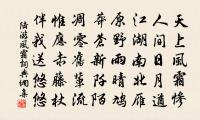 天上風霜慘
人間日月遒
江湖南北雁
原野雨晴鳩
莽蒼新阡陌
凋零舊輩流
惟應赤藤杖
伴我送悠悠
陸游風霜詞典網集